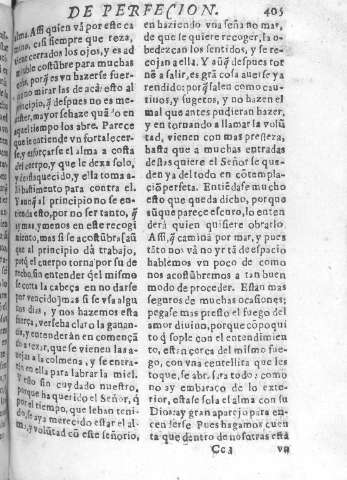 DE PERFECION. 405
alma. Assi quien vá por este ca
mino, casi siempre que reza,
tiene cerrados los ojos, y es ad
mirable costũbre para muchas
cosas, porq̃ es vn hazerse fuer-
ça, a no mirar las de acá: esto al
principio, q̃ despues no es me-
nester, mayor se haze quãdo en
aquel tiempo los abre. Parece
que se entiende vn fortalecer-
se, y esforçarse el alma a costa
del cuerpo, y que le dexa solo,
y desflaquecido, y ella toma a-
lli bastimento para contra el.
Y aunq̃ al principio no se en-
tienda esto, por no ser tanto, q̃
ay mas, y menos en este recogi
miento, mas si se acostũbra (aũ
que al principio dà trabajo,
porq̃ el cuerpo torna por su de
recho, sin entender q̃ el mismo
se corta la cabeça en no darse
por vencido) mas si se vsa algu
nos dias, y nos hazemos esta
fuerça, verse ha claro la ganan-
cia, y entenderán en començã
do a rezar, que se vienen las a-
uejas a la colmena, y se entra-
rán en ella para labrar la miel.
Y esto sin cuydado nuestro,
porque ha querido el Señor, q̃
por el tiempo, que le han teni-
do, se aya merecido estar el al-
ma, y voluntad cõ este señorio,
en haziendo vna seña no mar,
de que se quiere recoger, la o-
bedezcan los sentidos, y se re-
cojan a ella. Y aũq̃ despues tor
nẽ a salir, es grã cosa auerse ya
rendido: porq̃ salen como cau-
tiuos, y sugetos, y no hazen el
mal que antes pudieran hazer,
y en tornando a llamar la volũ
tad, vienen con mas presteza,
hasta que a muchas entradas
destas quiere el Señor se que-
den ya del todo en cõtempla-
ciõ perfeta. Entiẽdase mucho
esto que queda dicho, porque
aũque parece escuro, lo enten
derá quien quisiere obrarlo.
Assi, q̃ caminã por mar, y pues
tãto nos vá no yr tã de espacio
hablemos vn poco de como
nos acostũbremos a tan buen
modo de proceder. Estan mas
seguros de muchas ocasiones;
pegase mas presto el fuego del
amor diuino, porque cõ poqui
to q̃ sople con el entendimien
to, estan cerca del mismo fue-
go, con vna centellita que les
toque, se abrasará todo: como
no ay embaraço de lo exte-
rior, estase sola el alma con su
Dios: ay gran aparejo para en-
cenderse. Pues hagamos cuen
ta que dentro de nosotras está
Cc 3 vn